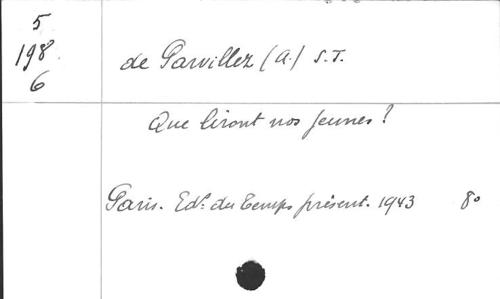 5
198
6
de Parvillez (A.) S.J.
Que liront nos jeunes?
Paris. Edns du Temps présent. 1943 8°